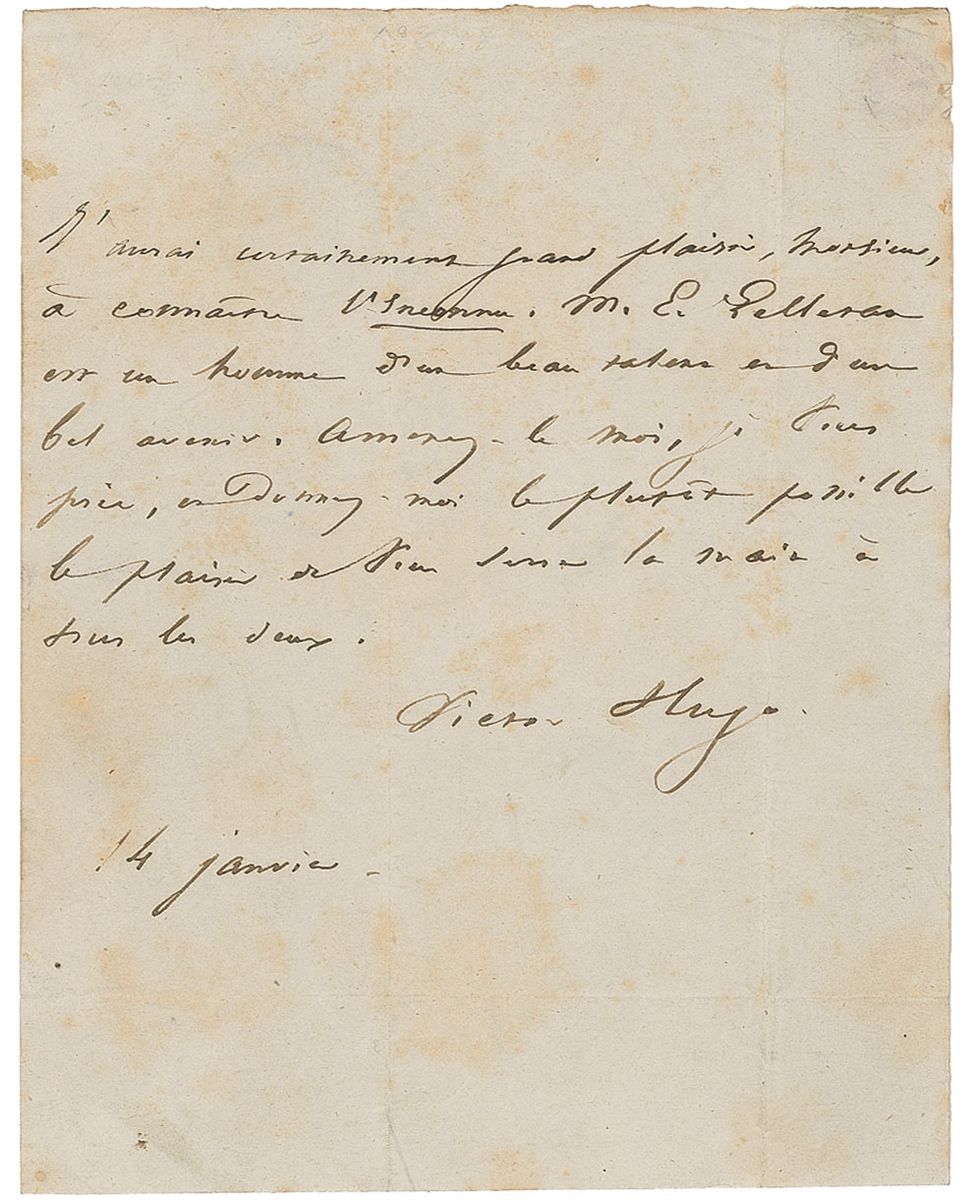 J'aurai certainement grand plaisir, Monsieur,
à connaître l'Inconnu. M. E. Pelletan
est un homme d'un beau talent et d'un
bel avenir. Amenez-le moi, je vous
prie, et donnez-moi le plutôt possible
le plaisir de vous serrer la main à
tous les deux.
Victor Hugo.
14 janvier -